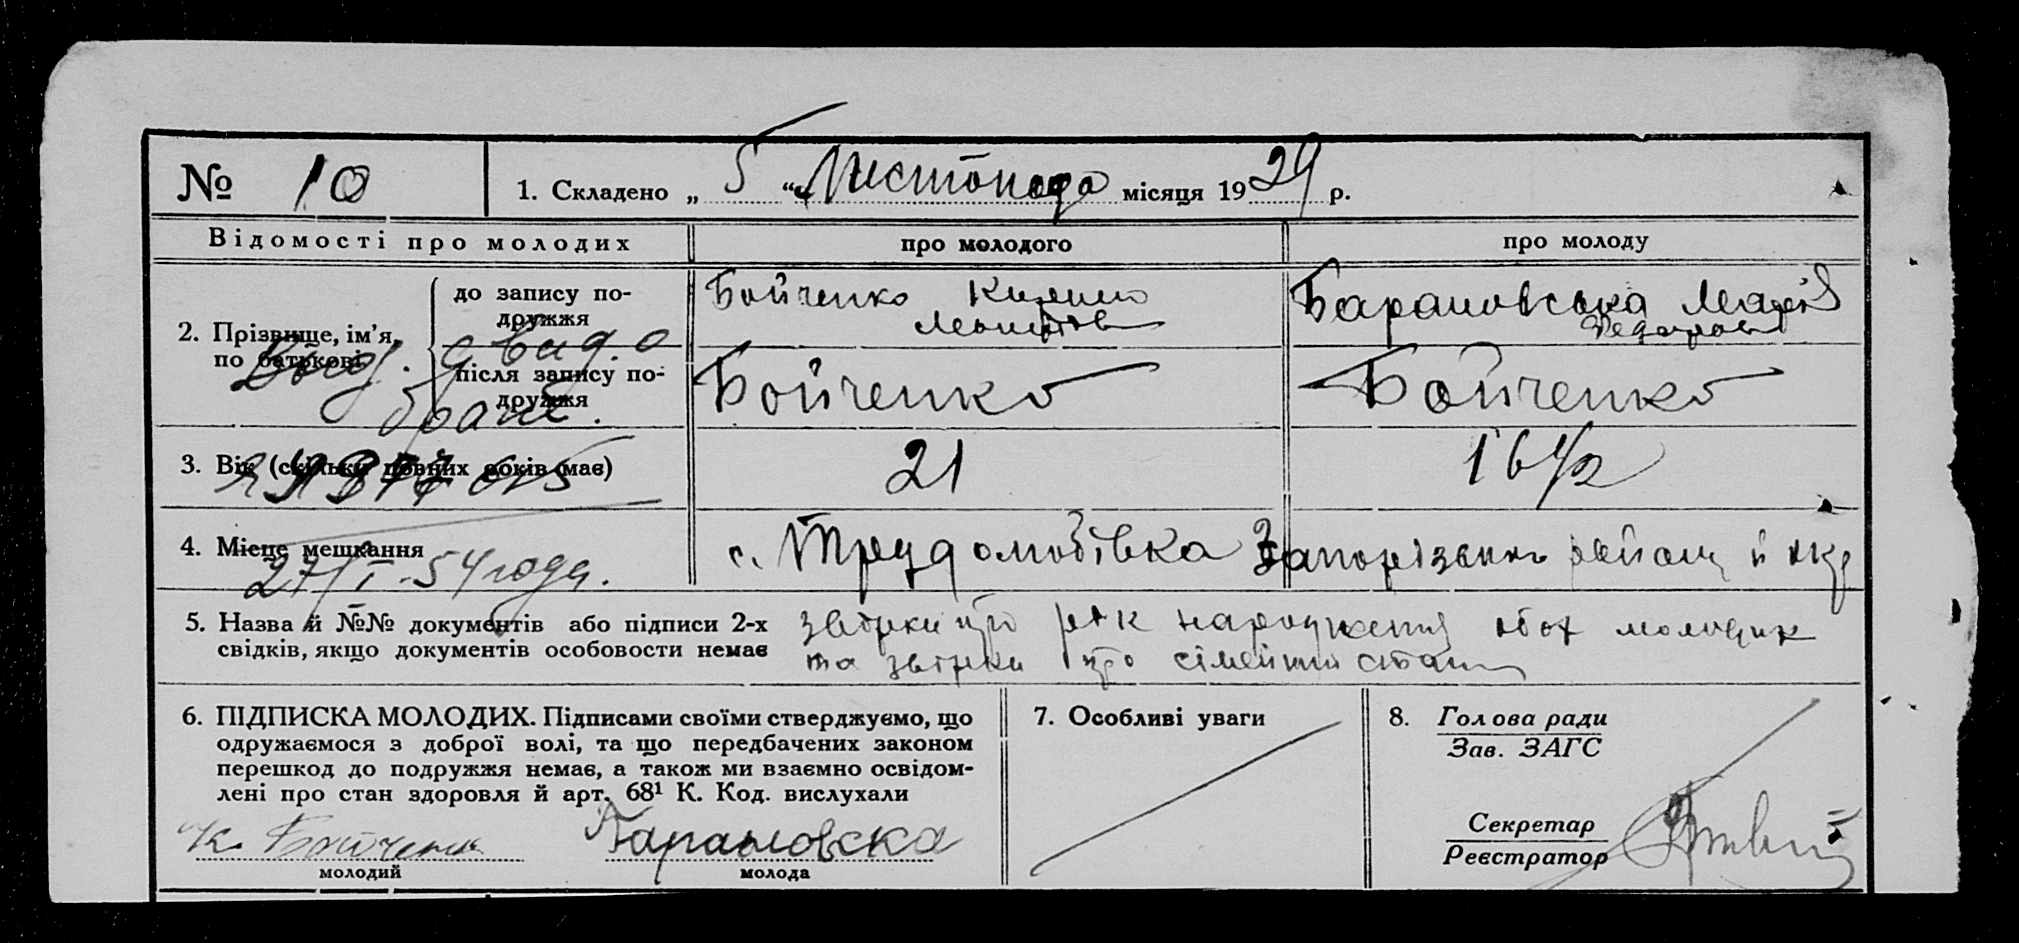 № 10
1. Складено „ 5 “ Листопада місяця 1929 р.
Відомості про молодих
про молодого
про молоду
2. Прізвище, ім'я, по батькові
до запису по-
дружжя
Бойченко
Барановська Марія
Выд. свид. о
після запису по-
дружжя
Бойченко
Бойченко
браке.
3. Вік (скільки повних років має)
21
16 1/2
4. Місце мешкання
с. Трудолюбівка Запорізьк. району й окр
27/I-54 года.
5. Назва й №№ документів або підписи 2-х
свідків, якщо документів особовости немає
про рік народження обох молодих
та про сімейний стан
6. ПІДПИСКА МОЛОДИХ. Підписами своїми стверджуємо, що
одружаємося з доброї волі, та що передбачених законом
перешкод до подружжя немає, а також ми взаємно освідом-
лені про стан здоровля й арт. 68¹ К. Код. вислухали
К. Бойченко
молодий
Барановска
молода
7. Особливі уваги
8. Голова ради
Зав. ЗАГС
Секретар
Реєстратор